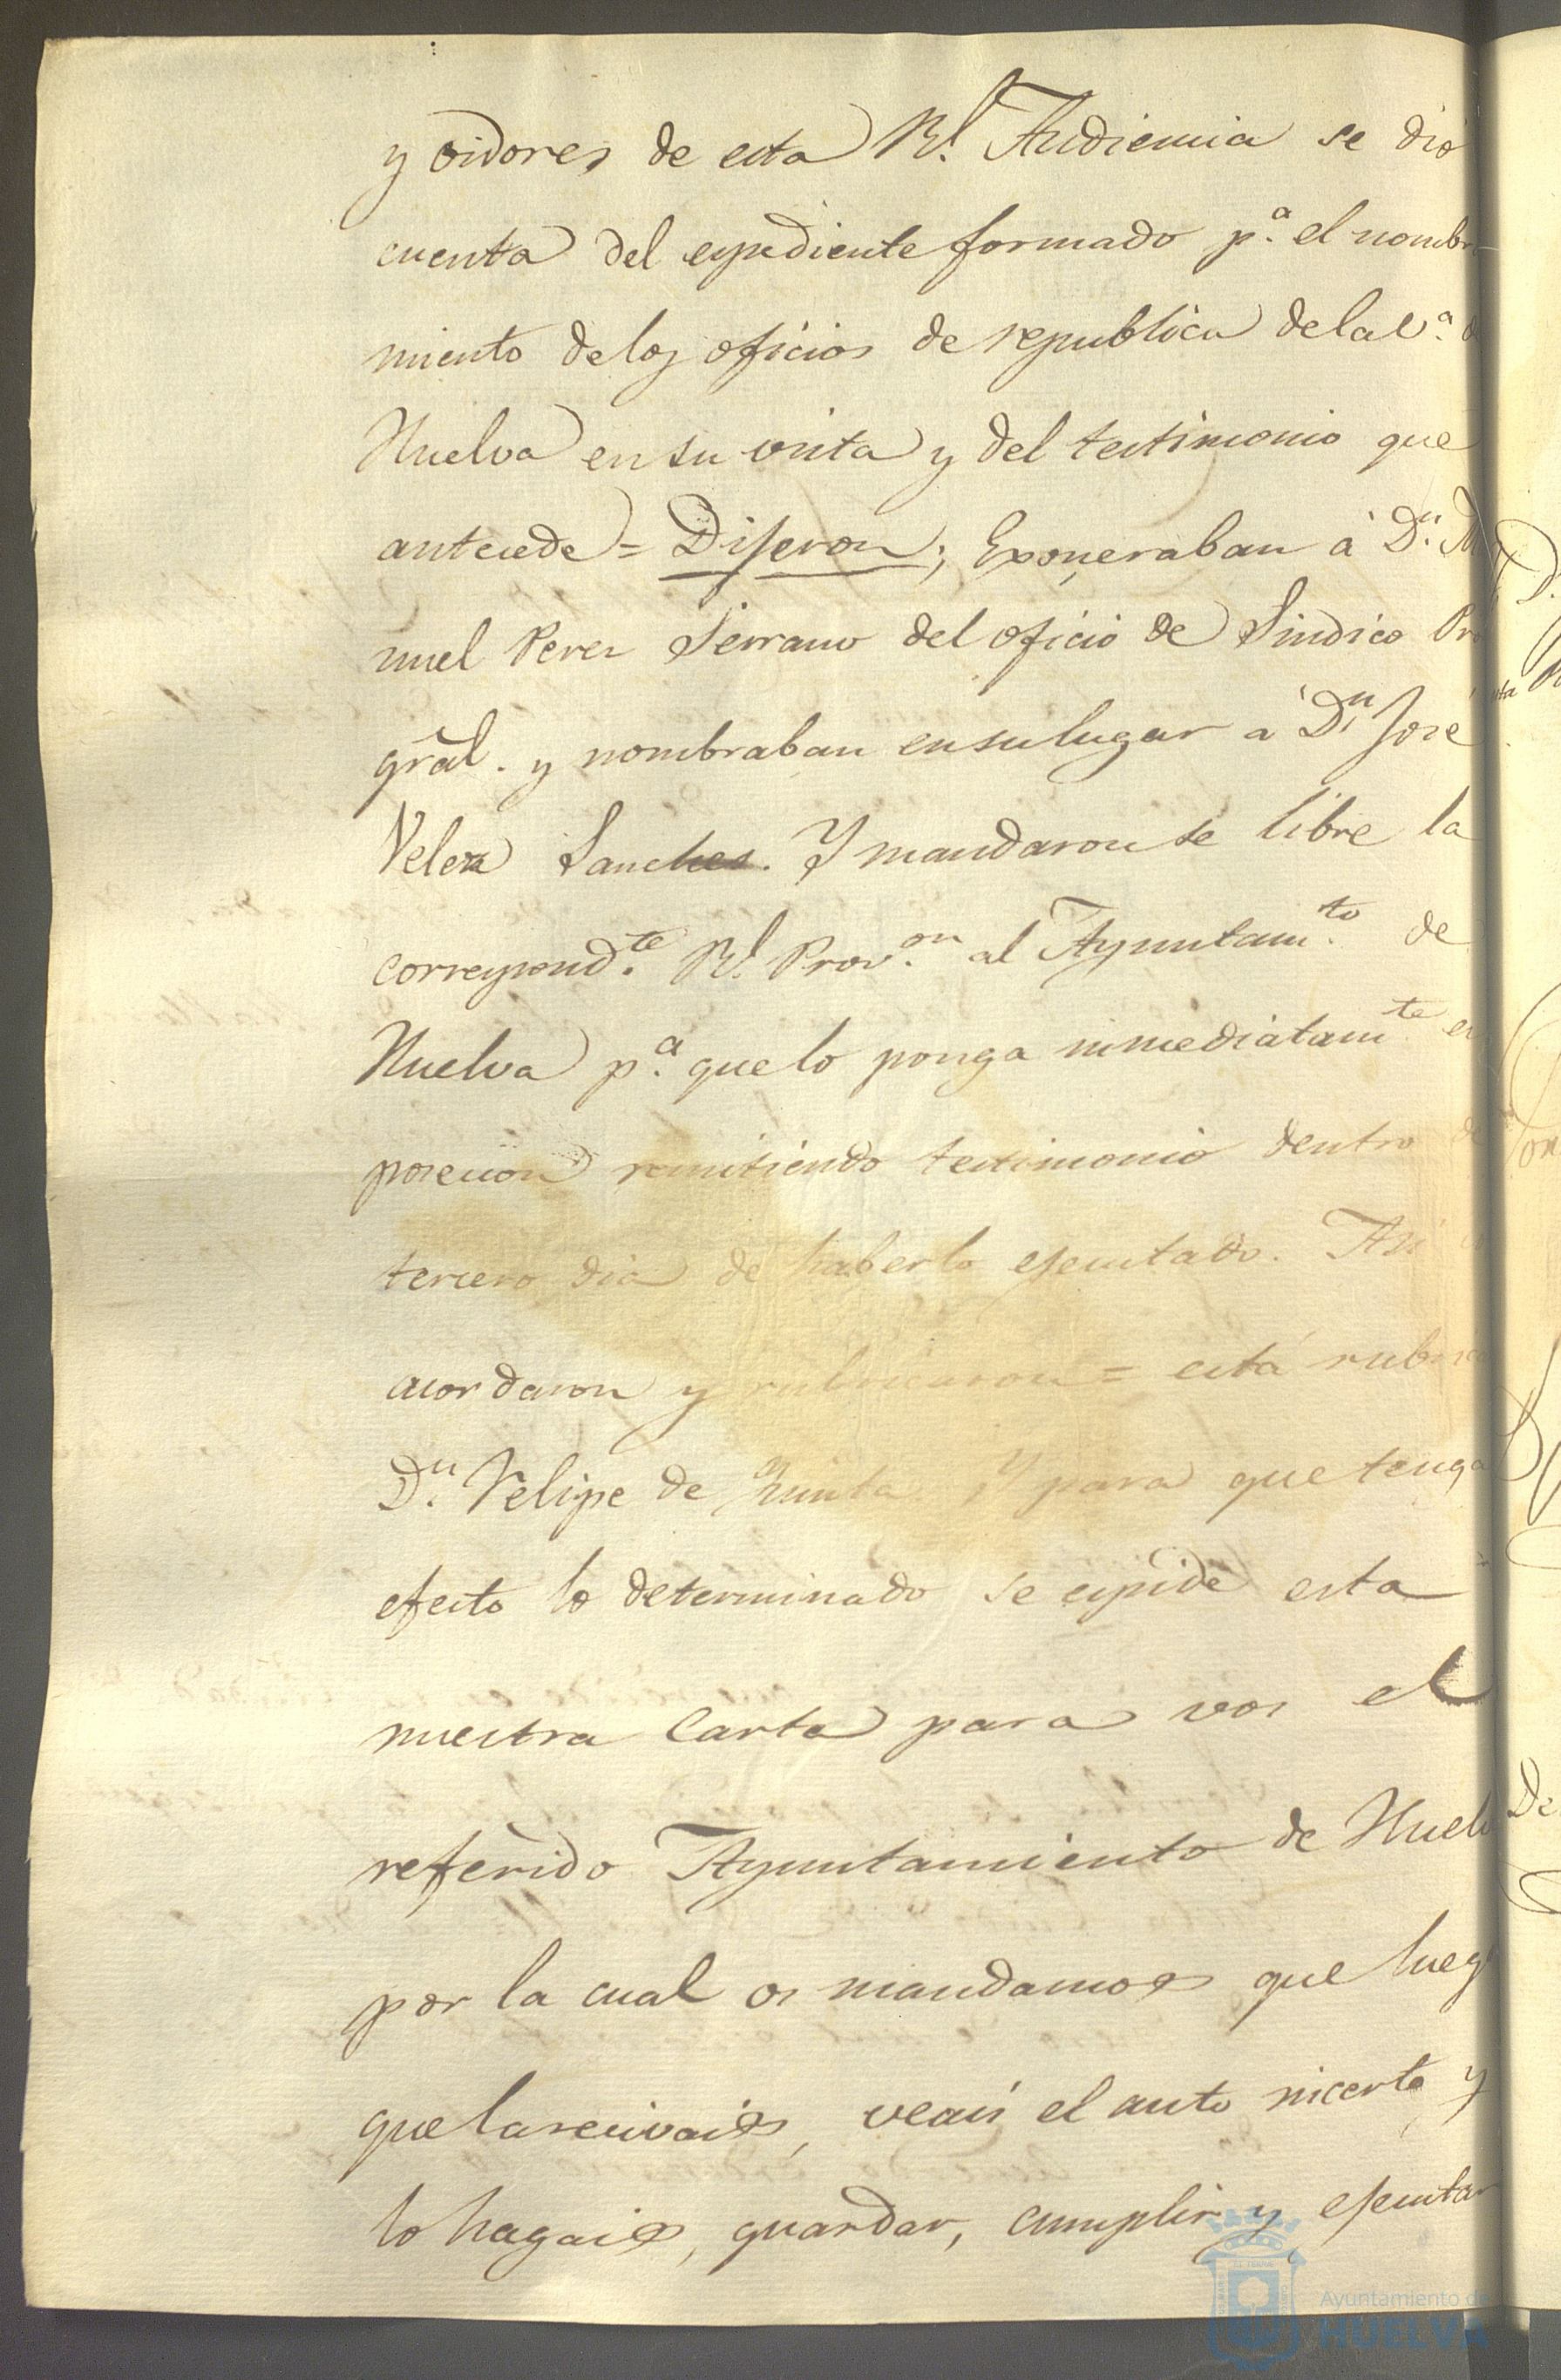 y oidores de esta Rl. Audiencia se dió
cuenta del expediente formado pª. el nombr
miento de los oficios de republica dela Vª. d
Huelva en su vista y del testimonio que
antecede = Dijeron; Exoneraban á Dn. M
nuel Perez Serrano del oficio de Sindico Pr
grãl. y nombraban en su lugar á Dn. José
Velez Sanches. Y mandaron se libre la
correspondte. Rl. Provon. al Ayuntamto. de
Huelva pª. que lo ponga inmediatamte en
posecion remitiendo testimonio dentro de
tercero dia de haberlo ejecutado. Asi lo
acordaron y rubricaron = está rubrica
Dn. Felipe de y para que tenga
efecto lo determinado se expide esta
nuestra Carta para vos el
referido Ayuntamiento de Huelv
por la cual os mandamos que lueg
que la recivais, veais el auto incerto y
lo hagais, guardar, cumplir y ejecutar
Ayuntamiento de
HUELVA